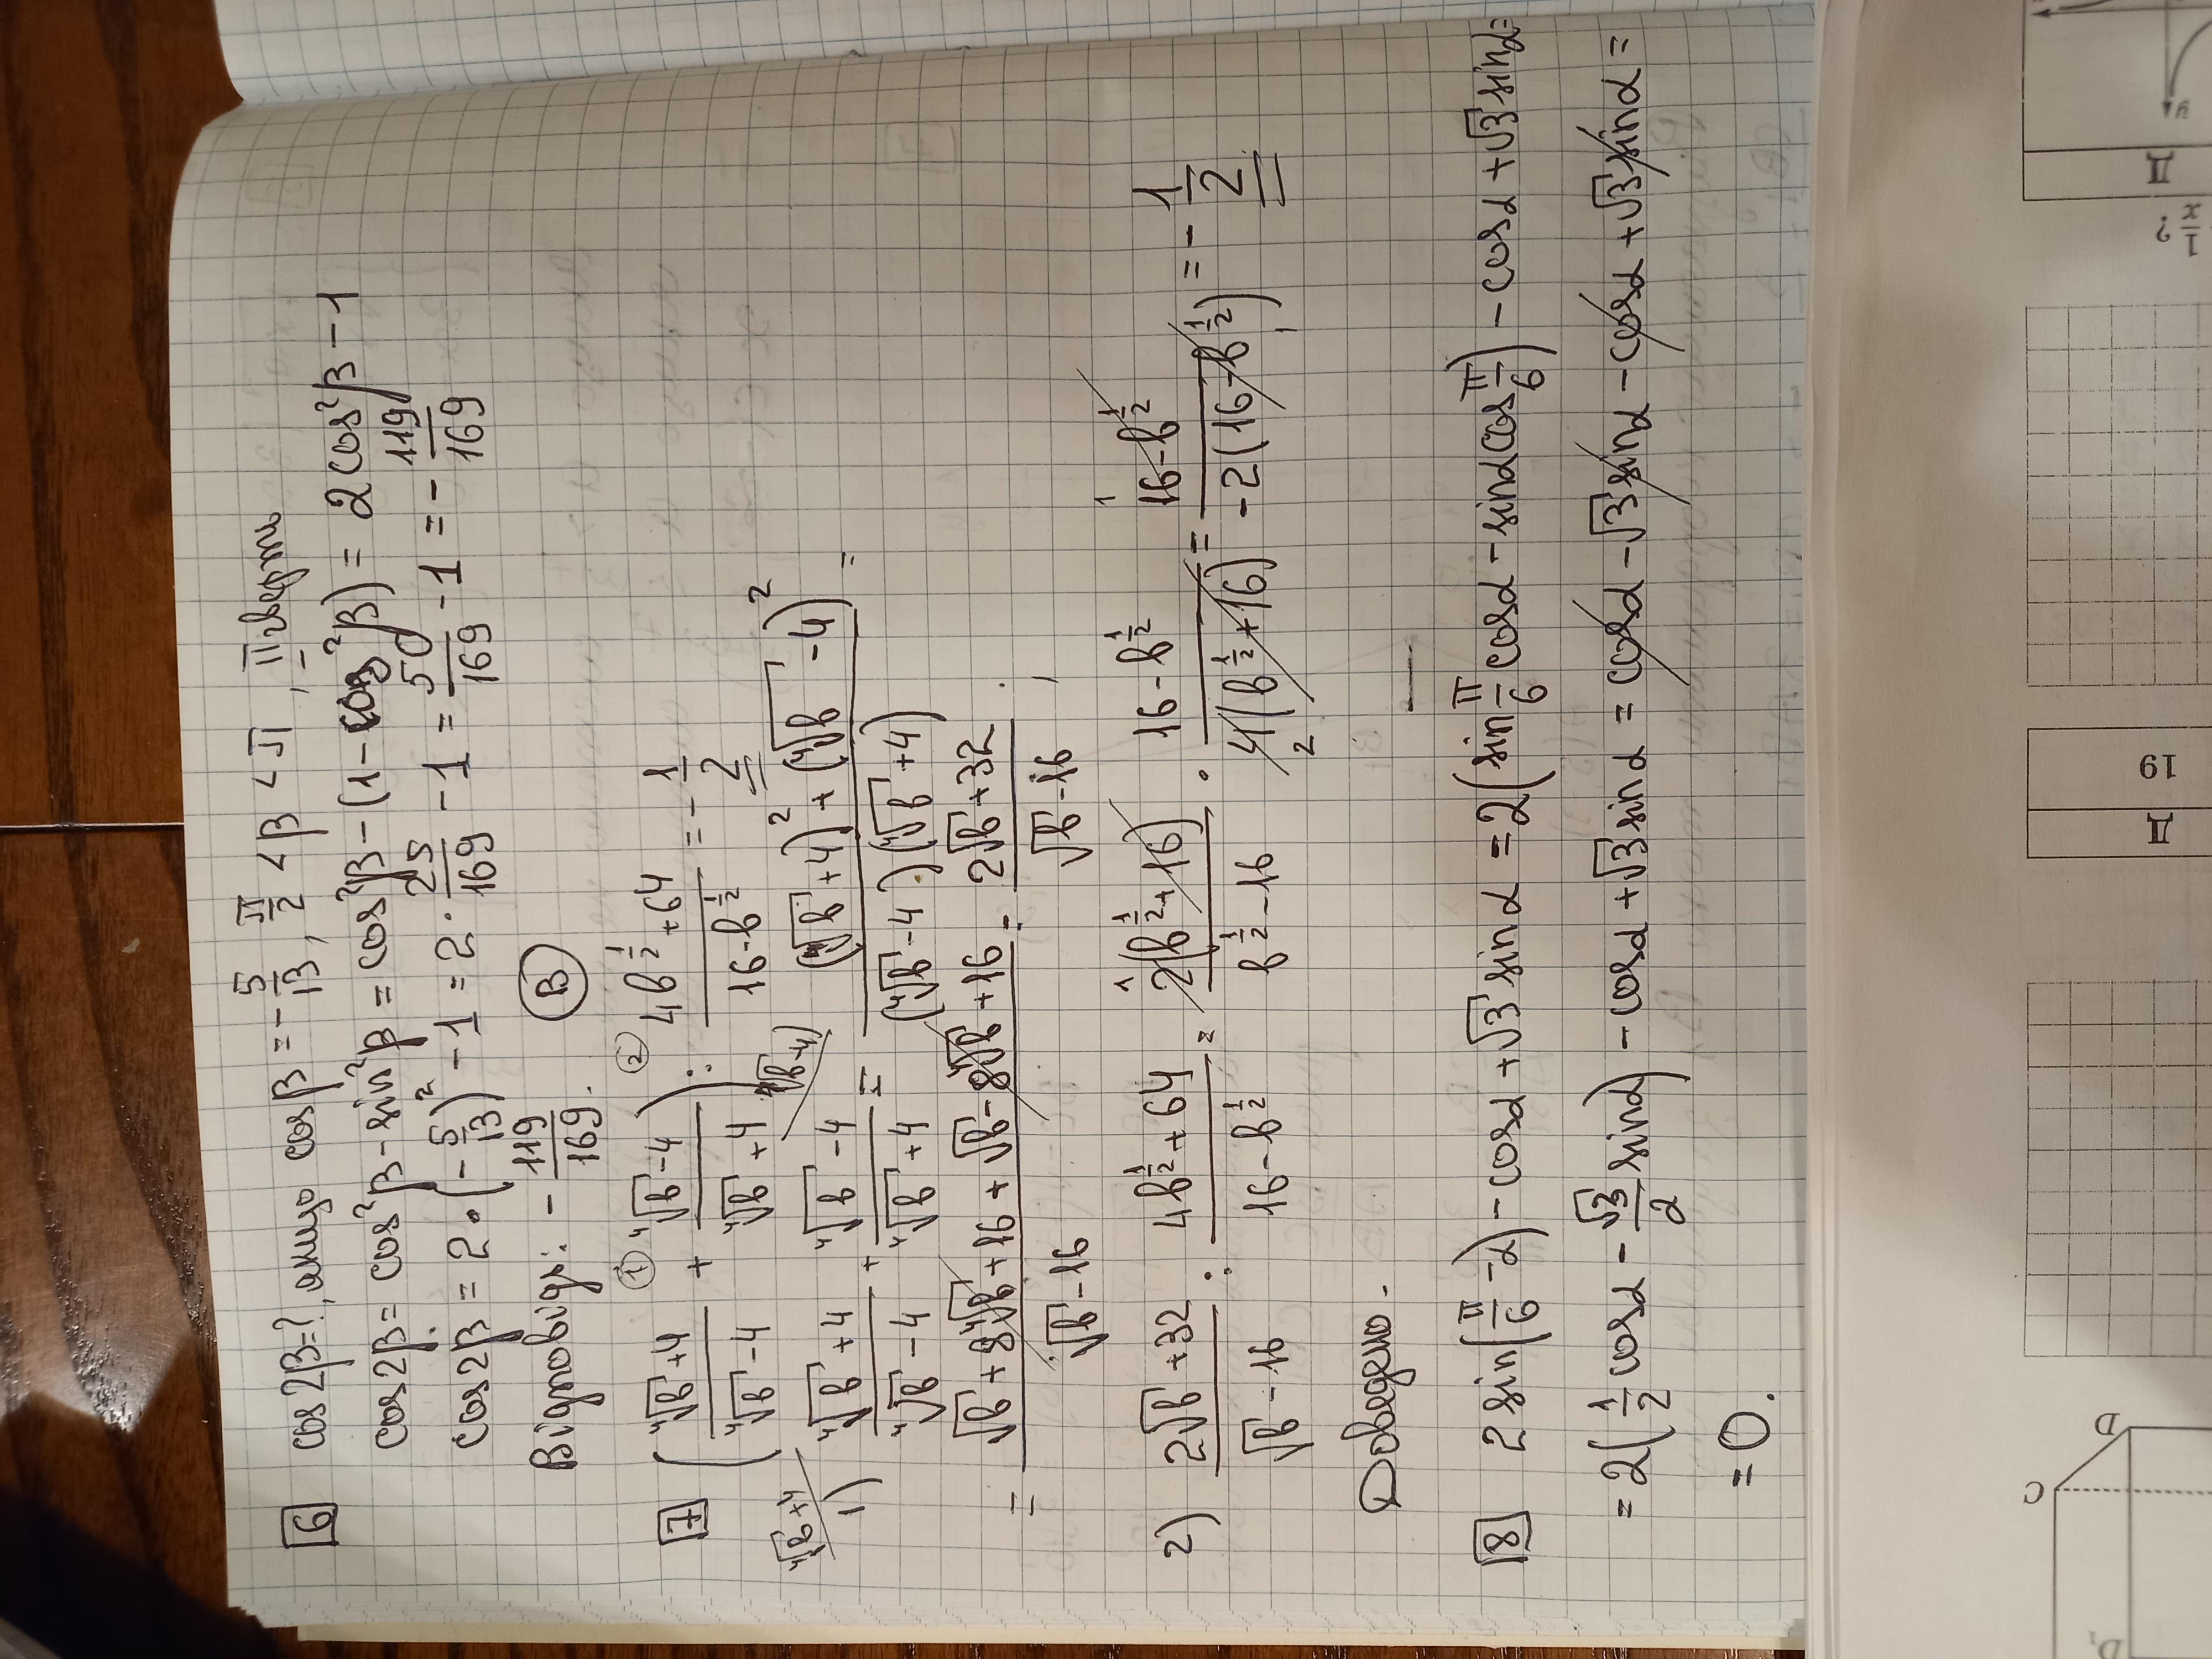 6 cos2β=?, якщо cosβ = -5/13, π/2 < β < π, II чверть
cos2β = cos²β - sin²β = cos²β - (1 - cos²β) = 2cos²β - 1
cos2β = 2·(-5/13)² - 1 = 2·25/169 - 1 = 50/169 - 1 = -119/169
Відповідь: -119/169. В
① ②
7 ((⁴√b+4)/(⁴√b-4) + (⁴√b-4)/(⁴√b+4)) : (4b^(1/2)+64)/(16-b^(1/2)) = -1/2
⁴√b+4 ⁴√b-4)
1) (⁴√b+4)/(⁴√b-4) + (⁴√b-4)/(⁴√b+4) = ((⁴√b+4)²+(⁴√b-4)²)/((⁴√b-4)(⁴√b+4)) =
= (√b+8⁴√b+16+√b-8⁴√b+16)/(√b-16) = (2√b+32)/(√b-16);
2) (2√b+32)/(√b-16) : (4b^(1/2)+64)/(16-b^(1/2)) = 2(b^(1/2)+16)/(b^(1/2)-16) · (16-b^(1/2))/(4(b^(1/2)+16)) = (16-b^(1/2))/(-2(16-b^(1/2))) = -1/2
Доведено.
8 2sin(π/6-α) - cosα + √3 sinα = 2(sin π/6 cosα - sinα cos π/6) - cosα + √3 sinα =
= 2(1/2 cosα - √3/2 sinα) - cosα + √3 sinα = cosα - √3 sinα - cosα + √3 sinα =
= 0.
1/x ?
Д
у
Д
19
C
D
D₁